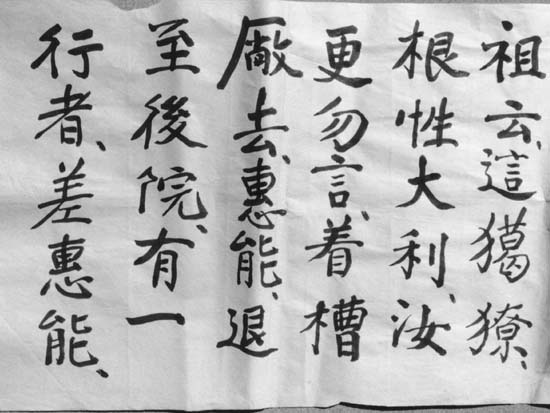 祖云、這獦獠、
根性大利、汝
更勿言、着槽
廠去、惠能、退
至後院、有一
行者、差惠能、